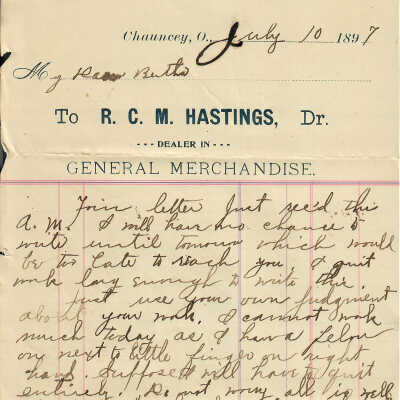 Chauncey, O., July 10 1897
My Dear Bertha
To R. C. M. HASTINGS, Dr.
--- DEALER IN ---
GENERAL MERCHANDISE.
Your letter Just rec'd this
A.M. I will have no chance to
write until tomorrow which would
be too late to reach you I quit
work long enough to write this.
Just use your own Judgment
about your work. I cannot work
much today as I have a Felon
on next to little finger on right
hand. Suppose I will have to quit
entirely. Do not worry all is well